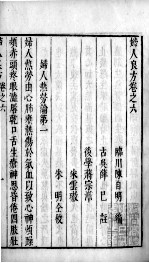 婦人良方卷之六
臨川陳自明 編
古吳薛 己 註
後學蔣宗澹
朱雲燉
朱 明仝校
婦人熱勞論第一
婦人熱勞由心肺壅熱傷於氣血以致心神煩躁
頰赤頭疼眼澀唇乾口舌生瘡神思昏倦四肢壯